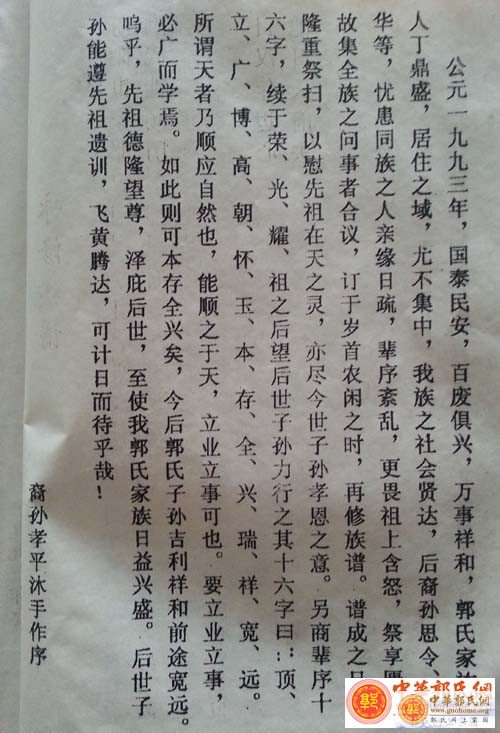 公元一九九三年，国泰民安，百废俱兴，万事祥和，郭氏家族
人丁鼎盛，居住之域，尤不集中，我族之社会贤达，后裔孙思令、
华等，忧患同族之人亲缘日疏，辈序紊乱，更畏祖上含怒，祭享
故集全族之问事者合议，订于岁首农闲之时，再修族谱。谱成之日
隆重祭扫，以慰先祖在天之灵，亦尽今世子孙孝恩之意。另商辈序十
六字，续于荣、光、耀、祖之后望后世子孙力行之其十六字曰：顶、
立、广、博、高、朝、怀、玉、本、存、全、兴、瑞、祥、宽、远。
所谓天者乃顺应自然也，能顺之于天，立业立事可也。要立业立事，
必广而学焉。如此则可本存全兴矣，今后郭氏子孙吉利祥和前途宽远。
呜乎，先祖德隆望尊，泽庇后世，至使我郭氏家族日益兴盛。后世子
孙能遵先祖遗训，飞黄腾达，可计日而待乎哉！
裔孙孝平沐手作序
中华郭氏网
www.guohome.org
中华郭氏网
www.guohome.org
郭氏网上家园